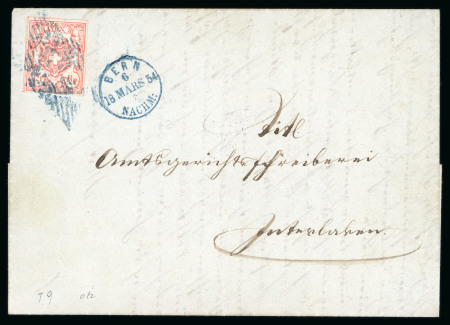 BERN
6
18 MARS 54
NACHM:
Titl
Amtsgerichtsschreiberei
Interlaken.
T9